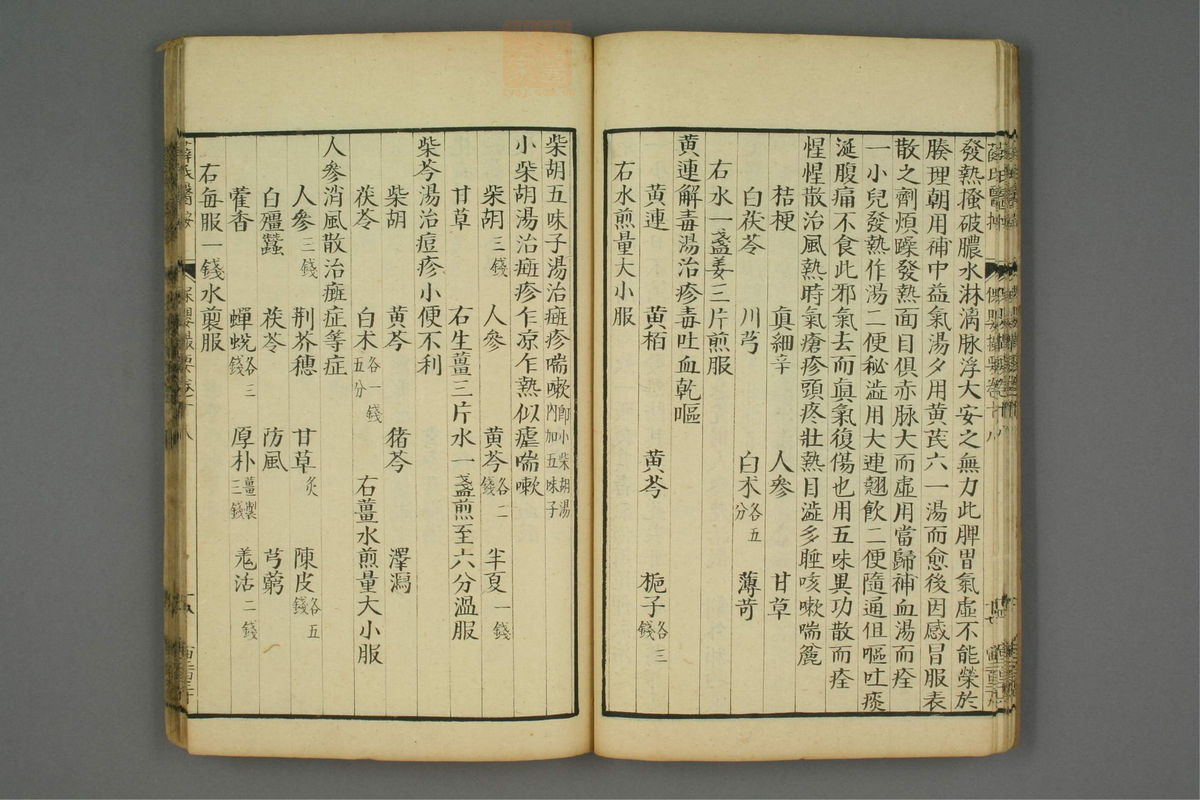 發熱搔破膿水淋漓脉浮大安之無力此脾胃氣虛不能榮於
腠理朝用補中益氣湯夕用黄芪六一湯而愈後因感冒服表
散之劑煩躁發熱面目俱赤脉大而虛用當歸補血湯而痊
一小兒發熱作渴二便秘澁用大連翹飲二便隨通但嘔吐痰
涎腹痛不食此邪氣去而真氣復傷也用五味異功散而痊
惺惺散治風熱時氣瘡疹頭疼壯熱目澁多睡咳嗽喘麄
桔梗 真細辛 人參 甘草
白茯苓 川芎 白术各五分 薄苛
右水一盞姜三片煎服
黄連解毒湯治疹毒吐血乾嘔
黄連 黄栢 黄芩 梔子各三錢
右水煎量大小服
柴胡五味子湯治癍疹喘嗽即小柴胡湯內加五味子
小柴胡湯治癍疹乍凉乍熱似瘧喘嗽
柴胡三錢 人參 黄芩各二錢 半夏一錢
甘草 右生薑三片水一盞煎至六分溫服
柴苓湯治痘疹小便不利
柴胡 黄芩 猪苓 澤瀉
茯苓 白术各一錢五分 右薑水煎量大小服
人參消風散治癍症等症
人參三錢 荆芥穗 甘草炙 陳皮各五錢
白殭蠶 茯苓 防風 芎藭
藿香 蟬蛻各三錢 厚朴薑製三錢 羗活二錢
右每服一錢水煎服